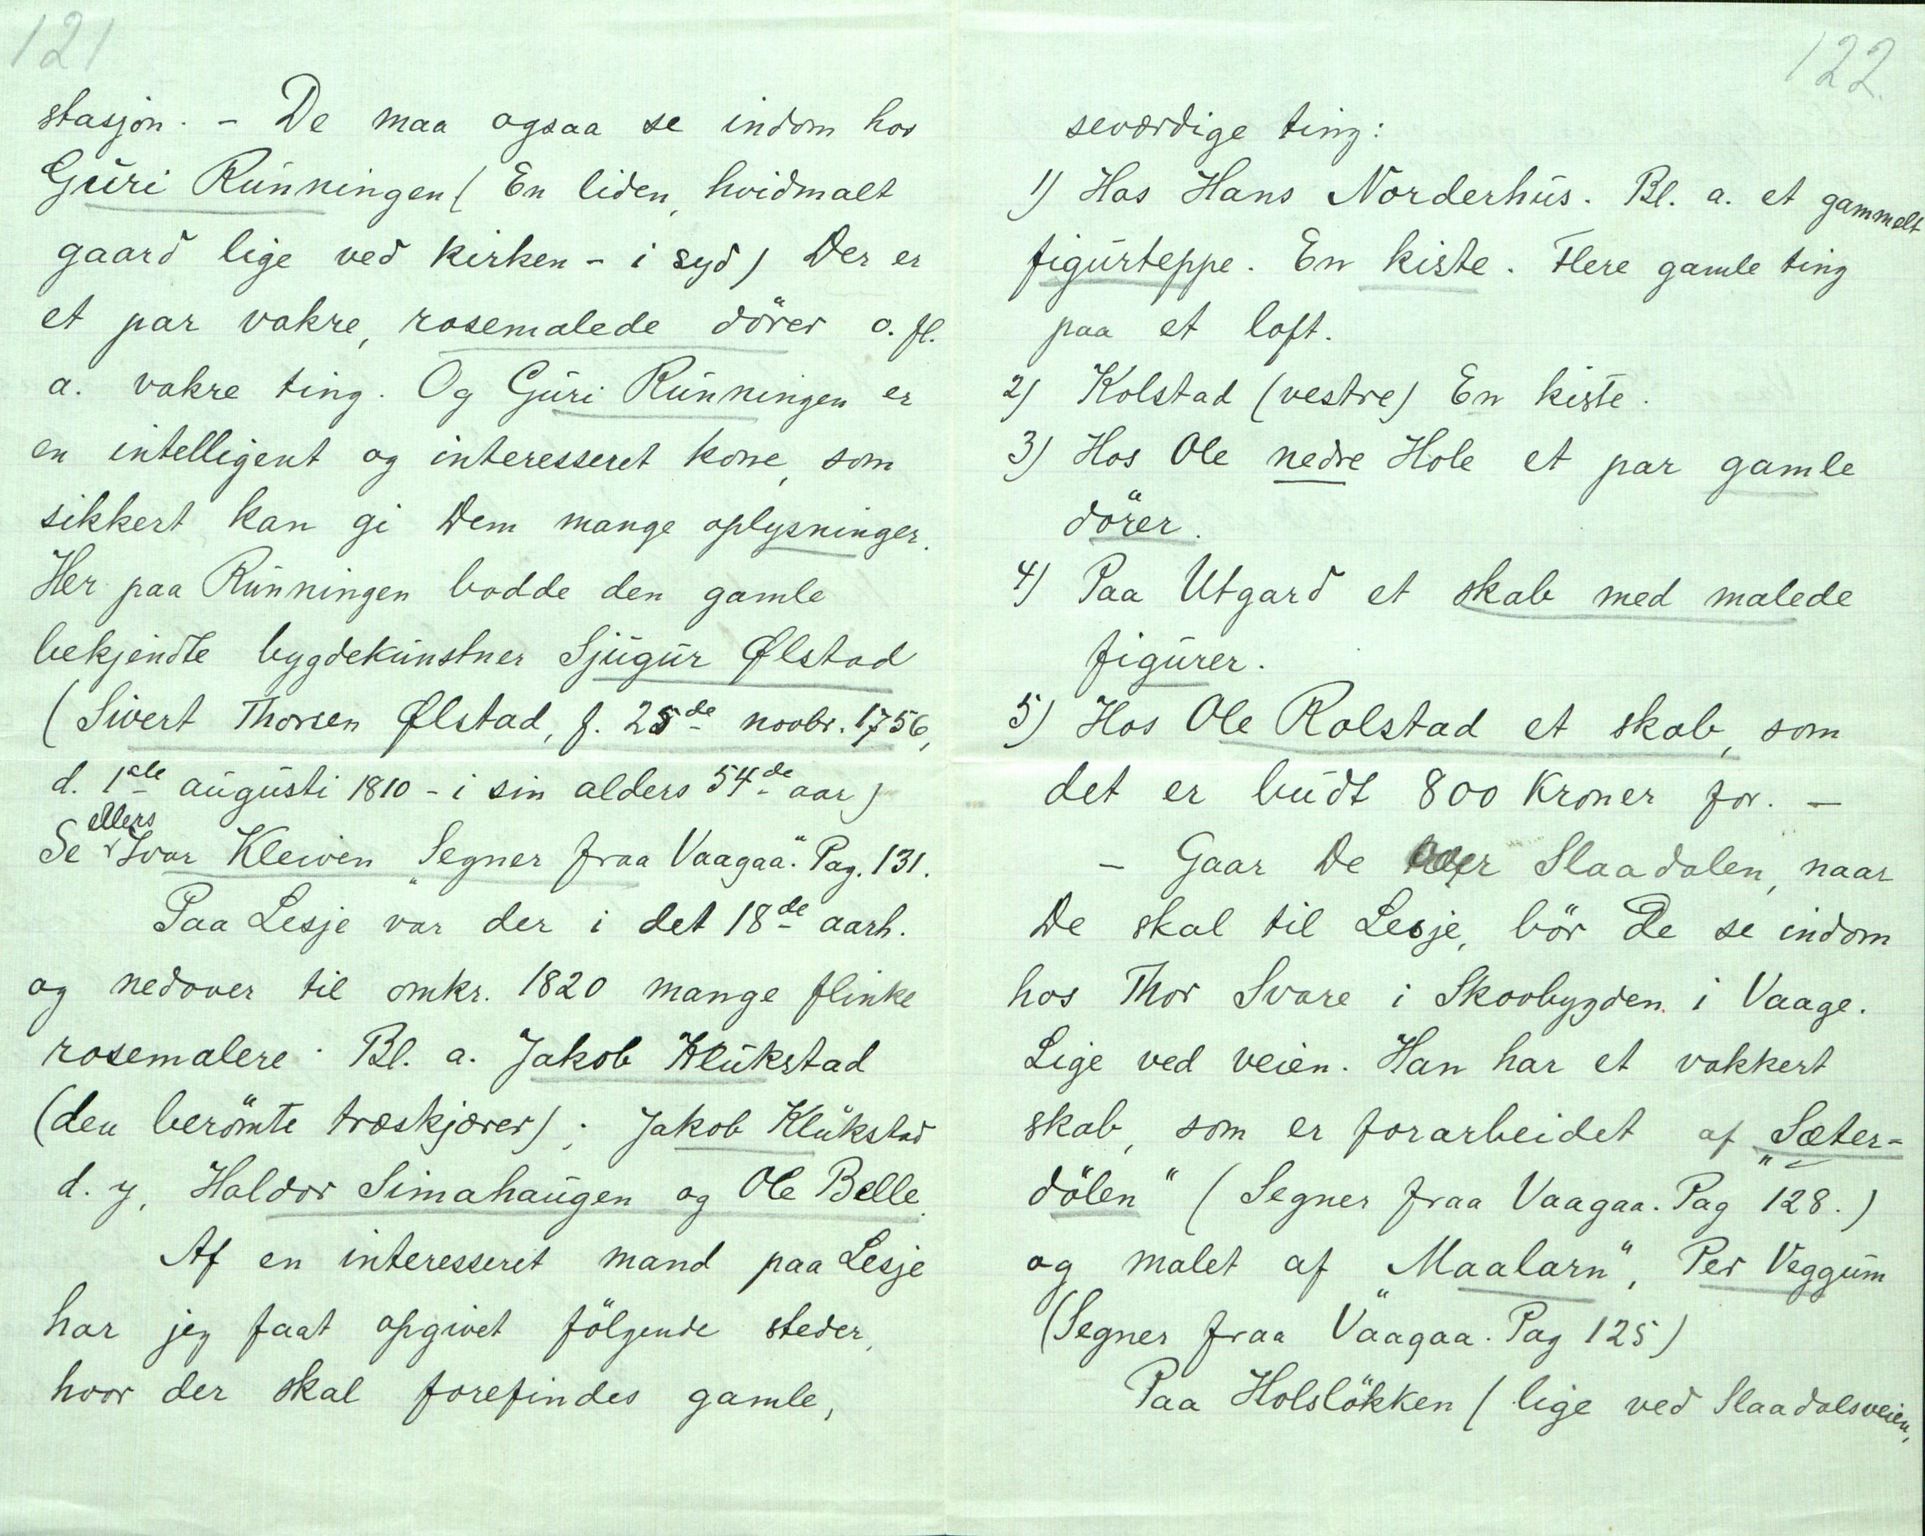 121
stasjon. - De maa ogsaa se indom hos
Guri Runningen (En liden, hvidmalt
gaard lige ved kirken - i syd) Der er
et par vakre, rosemalede dörer o. fl.
a. vakre ting. Og Guri Runningen er
en intelligent og interesseret kone, som
sikkert kan gi Dem mange oplysninger.
Her paa Runningen bodde den gamle
bekjendte bygdekunstner Sjugur Ølstad
(Sivert Thorsen Ølstad, f. 25de novbr. 1756,
d. 1ste augusti 1810 - i sin alders 54de aar)
Se ellers Ivar Kleiven „Segner fraa Vaagaa“. Pag. 131.
Paa Lesje var der i det 18de aarh.
og nedover til omkr. 1820 mange flinke
rosemalere. Bl. a. Jakob Klukstad
(den berömte træskjærer); Jakob Klukstad
d. y, Haldor Simahaugen og Ole Belle.
Af en interesseret mand paa Lesje
har jeg faat opgivet fölgende steder,
hvor der skal forefindes gamle,
122.
seværdige ting:
1) Hos Hans Norderhus. Bl. a. et gammelt
figurteppe. En kiste. Flere gamle ting
paa et loft.
2) Kolstad (vestre) En kiste.
3) Hos Ole nedre Hole et par gamle
dörer.
4) Paa Utgard et skab med malede
figurer.
5) Hos Ole Rolstad et skab, som
det er budt 800 Kroner for. -
- Gaar De over Slaadalen, naar
De skal til Lesje, bör De se indom
hos Thor Svare i Skovbygden i Vaage.
Lige ved veien. Han har et vakkert
skab, som er forarbeidet af „Sæter-
dölen“ (Segner fraa Vaagaa. Pag 128.)
og malet af „Maalarn“, Per Veggum
(Segner fraa Vaagaa. Pag 125)
Paa Holslökken (lige ved Slaadalsveien,